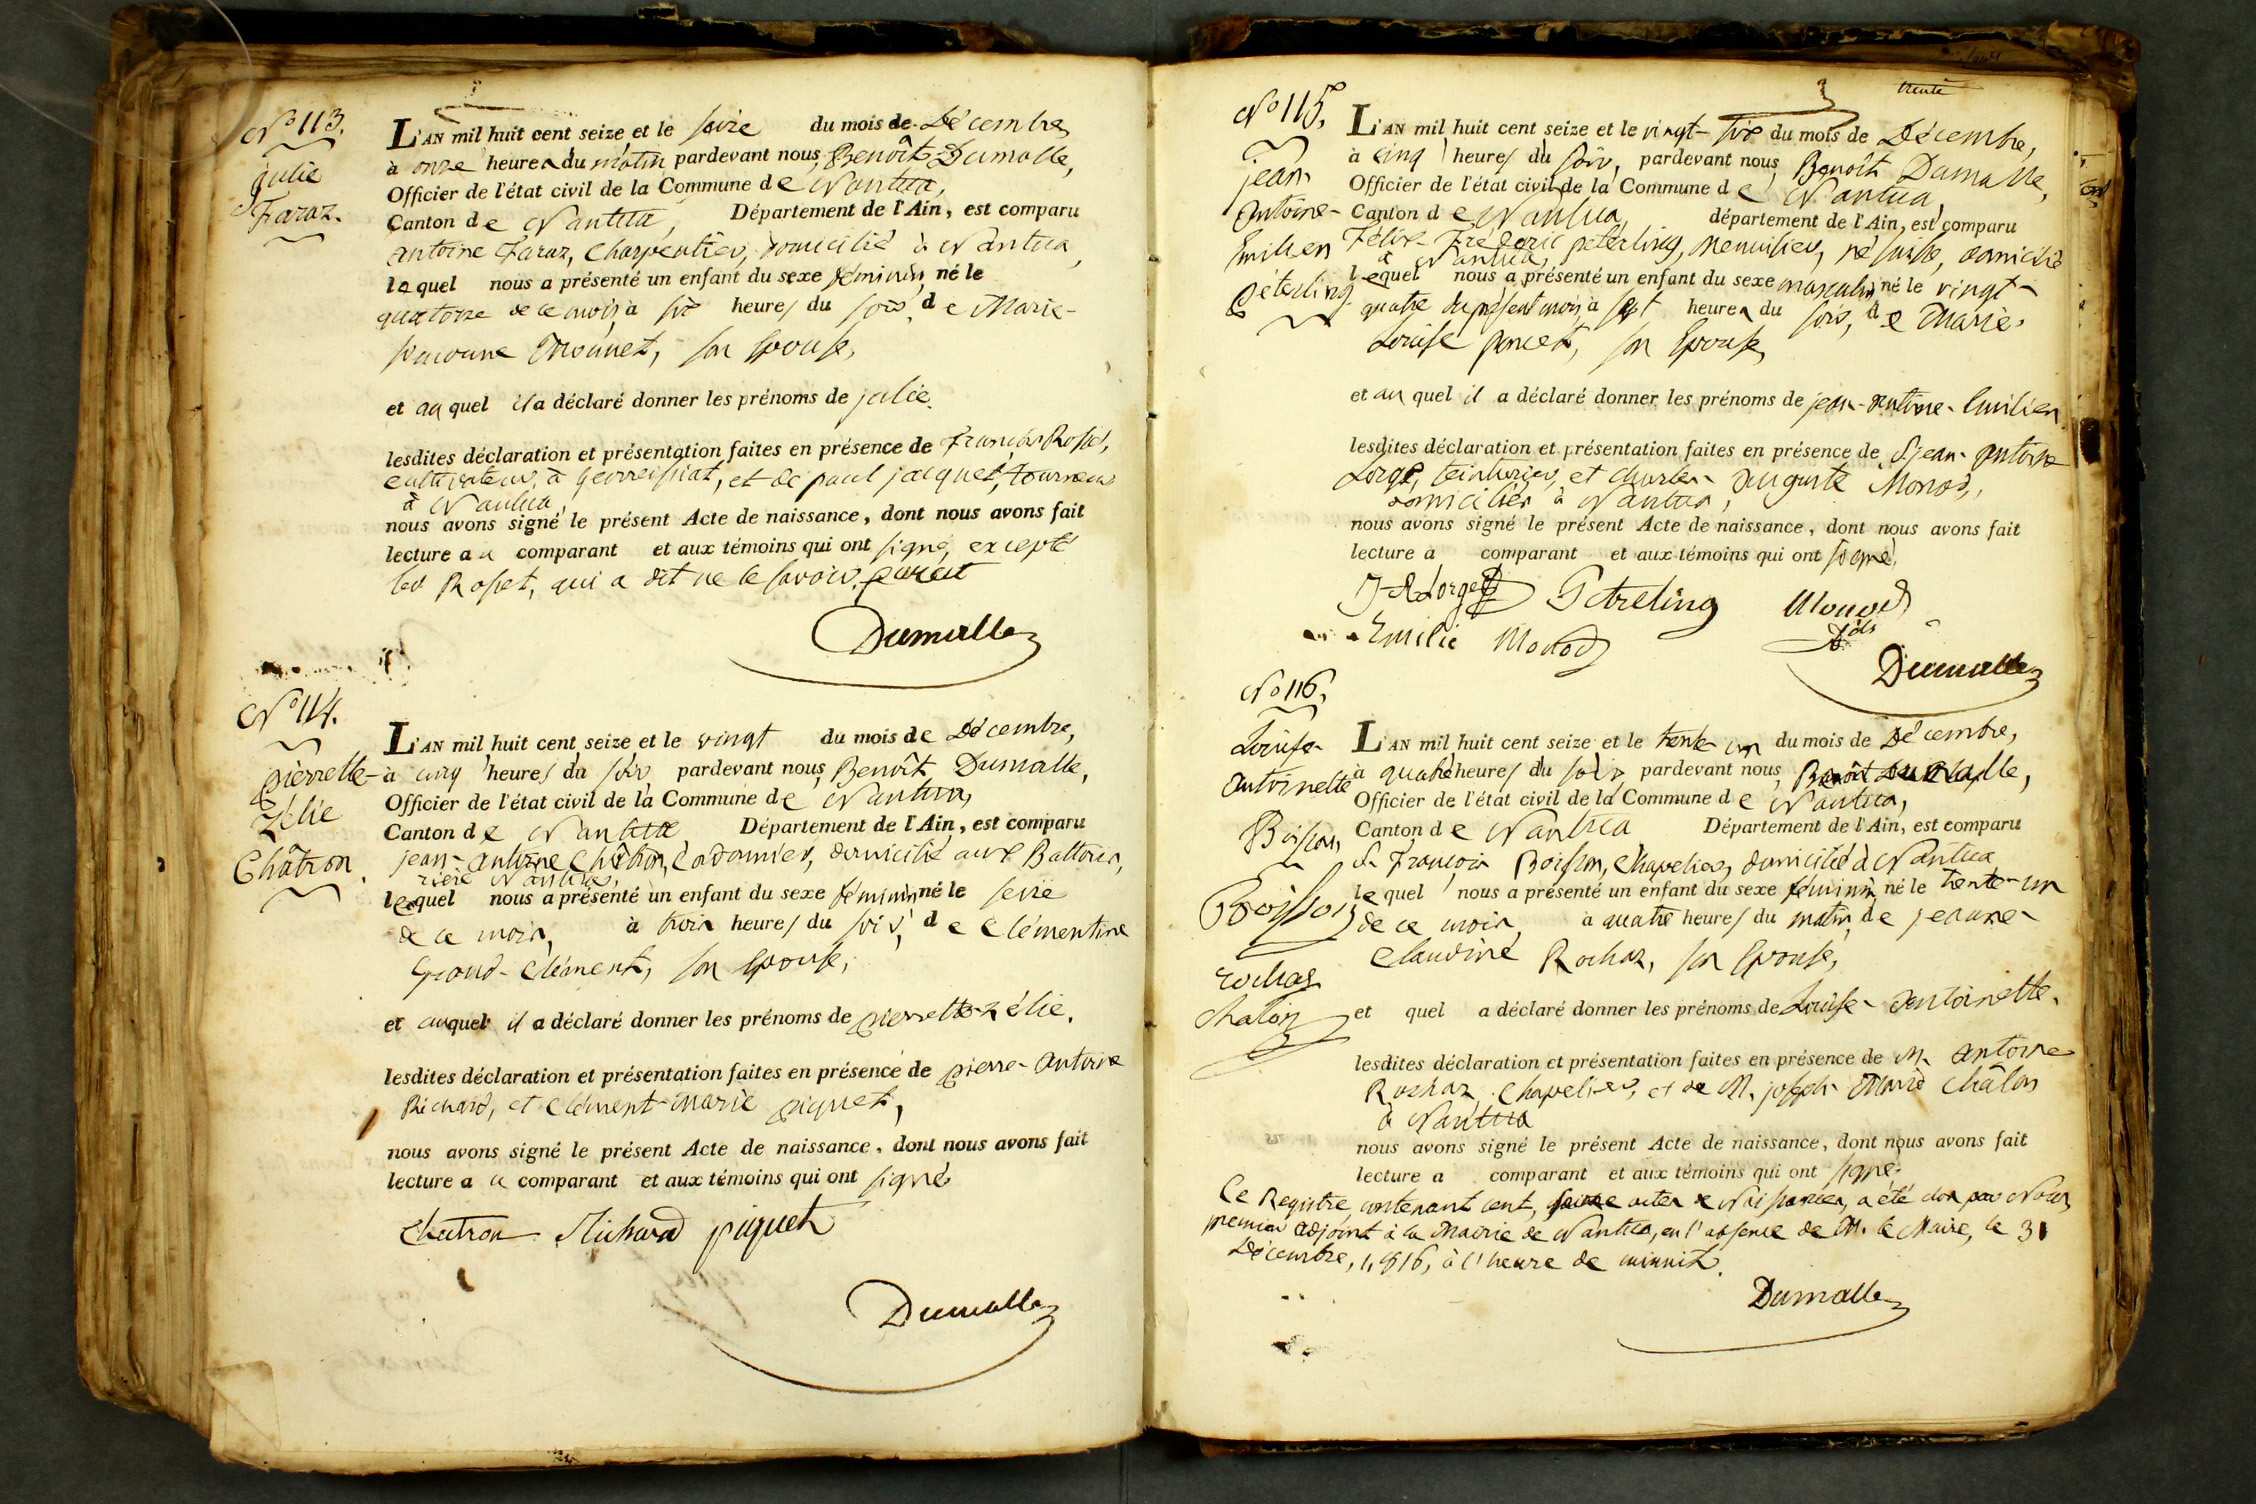 N° 113.
Julie
Faraz.
L'AN mil huit cent seize et le seize du mois de Décembre,
à onze heures du matin pardevant nous, Benoît Dumalle,
Officier de l'état civil de la Commune de Nantua,
Canton de Nantua, Département de l'Ain, est comparu
antoine Faraz, Charpentier, domicilié à Nantua,
lequel nous a présenté un enfant du sexe féminin, né le
quatorze de ce mois à six heures du soir, de Marie-
son Epouse,
et auquel il a déclaré donner les prénoms de julie.
lesdites déclaration et présentation faites en présence de François Rosset,
cultivateur, à Geovreissiat, et de paul jacquet, tourneur
à Nantua,
nous avons signé le présent Acte de naissance, dont nous avons fait
lecture au comparant et aux témoins qui ont signé, excepté
led Rosset, qui a dit ne le savoir,
Dumalle
N° 114.
pierrette-
Zélie
Châtron.
L'AN mil huit cent seize et le vingt du mois de Décembre,
à cinq heures du soir pardevant nous, Benoît Dumalle,
Officier de l'état civil de la Commune de Nantua,
Canton de Nantua Département de l'Ain, est comparu
jean-antoine Châtron, Cordonnier, domicilié aux Battoirs,
rière Nantua,
lequel nous a présenté un enfant du sexe féminin né le seize
de ce mois, à trois heures du soir, de Clémentine
Grand-Clément, son Epouse,
et auquel il a déclaré donner les prénoms de pierrette-zélie.
lesdites déclaration et présentation faites en présence de pierre-antoine
Richard, et Clément-Marie piquet,
nous avons signé le présent Acte de naissance, dont nous avons fait
lecture au comparant et aux témoins qui ont signé
Chatron Richard piquet
Dumalle
trente
N° 115,
jean-
antoine-
Emilien
péterling
L'AN mil huit cent seize et le vingt-six du mois de Décembre,
à cinq heures du soir, pardevant nous, Benoît Dumalle,
Officier de l'état civil de la Commune de Nantua,
Canton de Nantua, département de l'Ain, est comparu
Félix-Fréderic péterling, menuisier, né suisse, domicilié
à Nantua,
lequel nous a présenté un enfant du sexe masculin né le vingt-
quatre du présent mois, à sept heures du soir, de Marie-
Louise poncet, son Epouse,
et auquel il a déclaré donner les prénoms de jean-antoine-Emilien
lesdites déclaration et présentation faites en présence de S. jean-antoine
Lorge, teinturier, et Charles-auguste Monod,
domiciliés à Nantua,
nous avons signé le présent Acte de naissance, dont nous avons fait
lecture a comparant et aux témoins qui ont signé,
J-A Lorge Petreling Monod
Emilie Monod
Dumalle
N° 116,
Louise-
antoinette
Boisson
Boisson
rochaz
chalon
L'AN mil huit cent seize et le trente-un du mois de Décembre,
à quatre heures du soir, pardevant nous, Benoît Dumalle,
Officier de l'état civil de la Commune de Nantua,
Canton de Nantua Département de l'Ain, est comparu
S. François Boisson, Chapelier, domicilié à Nantua
lequel nous a présenté un enfant du sexe féminin, né le trente-un
de ce mois, à quatre heures du matin, de jeanne-
Claudine Rochaz, son Epouse,
et quel a déclaré donner les prénoms de Louise-antoinette.
lesdites déclaration et présentation faites en présence de M. antoine
Rochaz, Chapelier, et de M. joseph-Marie Châlon
à Nantua
nous avons signé le présent Acte de naissance, dont nous avons fait
lecture a comparant et aux témoins qui ont signé.
Ce Registre, contenant cent, seize actes de Naissances, a été clos par Nous,
premier adjoint à la Mairie de Nantua, en l'absence de M. le Maire, le 31
Décembre, 1,816, à l'heure de minuit.
Dumalle